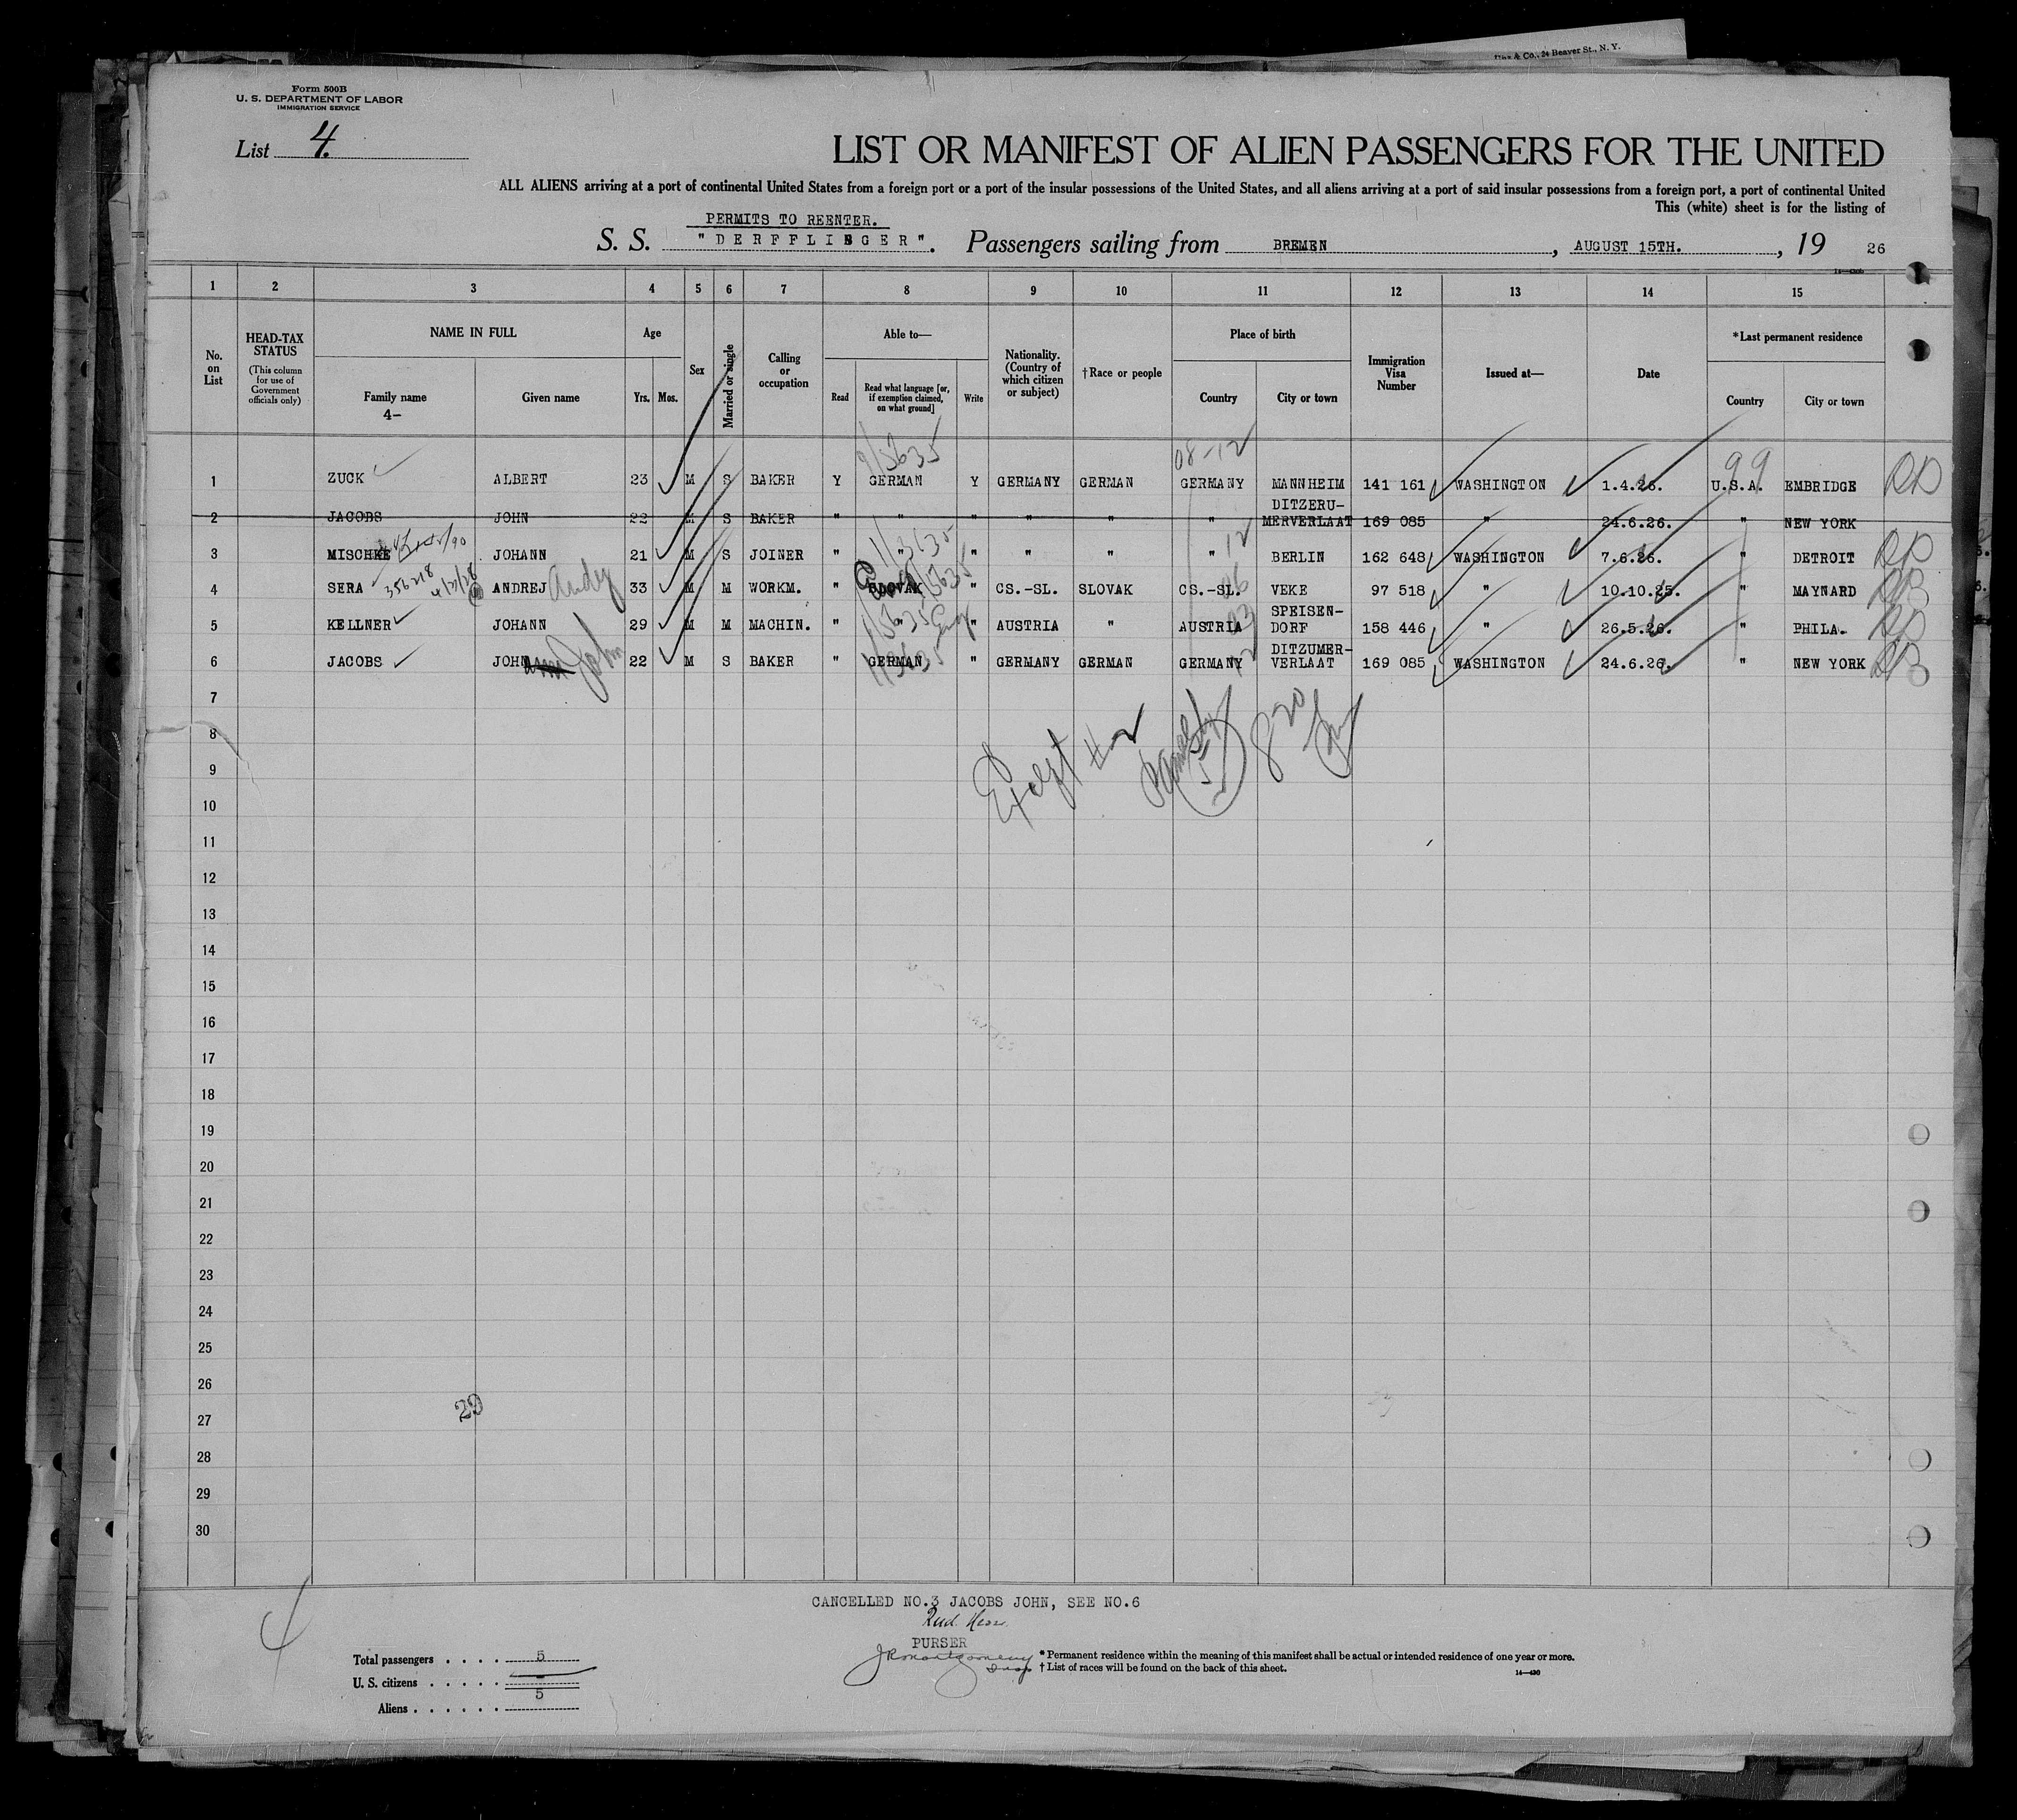 & Co., 24 Beaver St., N. Y.
Form 500B
U. S. DEPARTMENT OF LABOR
IMMIGRATION SERVICE
List 4.
LIST OR MANIFEST OF ALIEN PASSENGERS FOR THE UNITED
ALL ALIENS arriving at a port of continental United States from a foreign port or a port of the insular possessions of the United States, and all aliens arriving at a port of said insular possessions from a foreign port, a port of continental United
This (white) sheet is for the listing of
PERMITS TO REENTER.
S. S. "DERFFLINGER". Passengers sailing from BREMEN, AUGUST 15TH., 19 26
1 2 3 4 5 6 7 8 9 10 11 12 13 14 15
No. on List
HEAD-TAX STATUS (This column for use of Government officials only)
NAME IN FULL
Family name
4-
Given name
Age
Yrs. Mos.
Sex
Married or single
Calling or occupation
Able to—
Read
Read what language [or, if exemption claimed, on what ground]
Write
Nationality. (Country of which citizen or subject)
†Race or people
Place of birth
Country
City or town
Immigration Visa Number
Issued at—
Date
*Last permanent residence
Country
City or town
9/5635 08-12 99
1 ZUCK ALBERT 23 M S BAKER Y GERMAN Y GERMANY GERMAN GERMANY MANNHEIM 141 161 WASHINGTON 1.4.26. U.S.A. EMBRIDGE
2 JACOBS JOHN 22 M S BAKER " " " " " " DITZERU-MERVERLAAT 169 085 " 24.6.26. " NEW YORK
3 MISCHKE JOHANN 21 M S JOINER " " " " " " 12 BERLIN 162 648 WASHINGTON 7.6.26. " DETROIT
4 SERA 356218 4/21/28 ANDREJ Andy 33 M M WORKM. " SLOVAK " CS.-SL. SLOVAK CS.-SL. 06 VEKE 97 518 " 10.10.25. " MAYNARD
5 KELLNER JOHANN 29 M M MACHIN. " " " AUSTRIA " AUSTRIA 03 SPEISEN-DORF 158 446 " 26.5.26. " PHILA.
6 JACOBS JOHN John 22 M S BAKER " GERMAN " GERMANY GERMAN GERMANY 12 DITZUMER-VERLAAT 169 085 WASHINGTON 24.6.26. " NEW YORK
7
8
Except #2
5
820
9
10
11
12
13
14
15
16
17
18
19
20
21
22
23
24
25
26
29
27
28
29
30
4
CANCELLED NO.3 JACOBS JOHN, SEE NO.6
PURSER
JR Montgomery
Insp
Total passengers . . . . 5
U. S. citizens . . . . . -
Aliens . . . . . . 5
* Permanent residence within the meaning of this manifest shall be actual or intended residence of one year or more.
† List of races will be found on the back of this sheet.
14—430